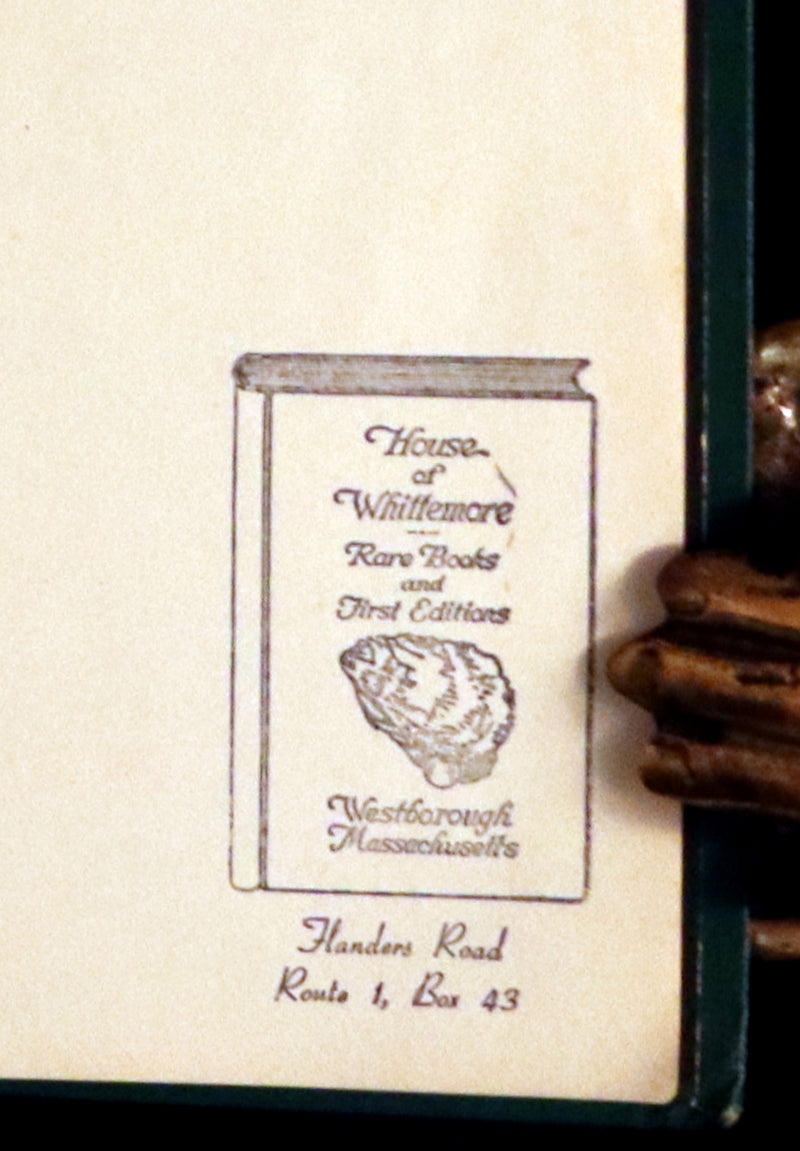 House
of
Whittemore
Rare Books
and
First Editions
Westborough
Massachusetts
Flanders Road
Route 1, Box 43